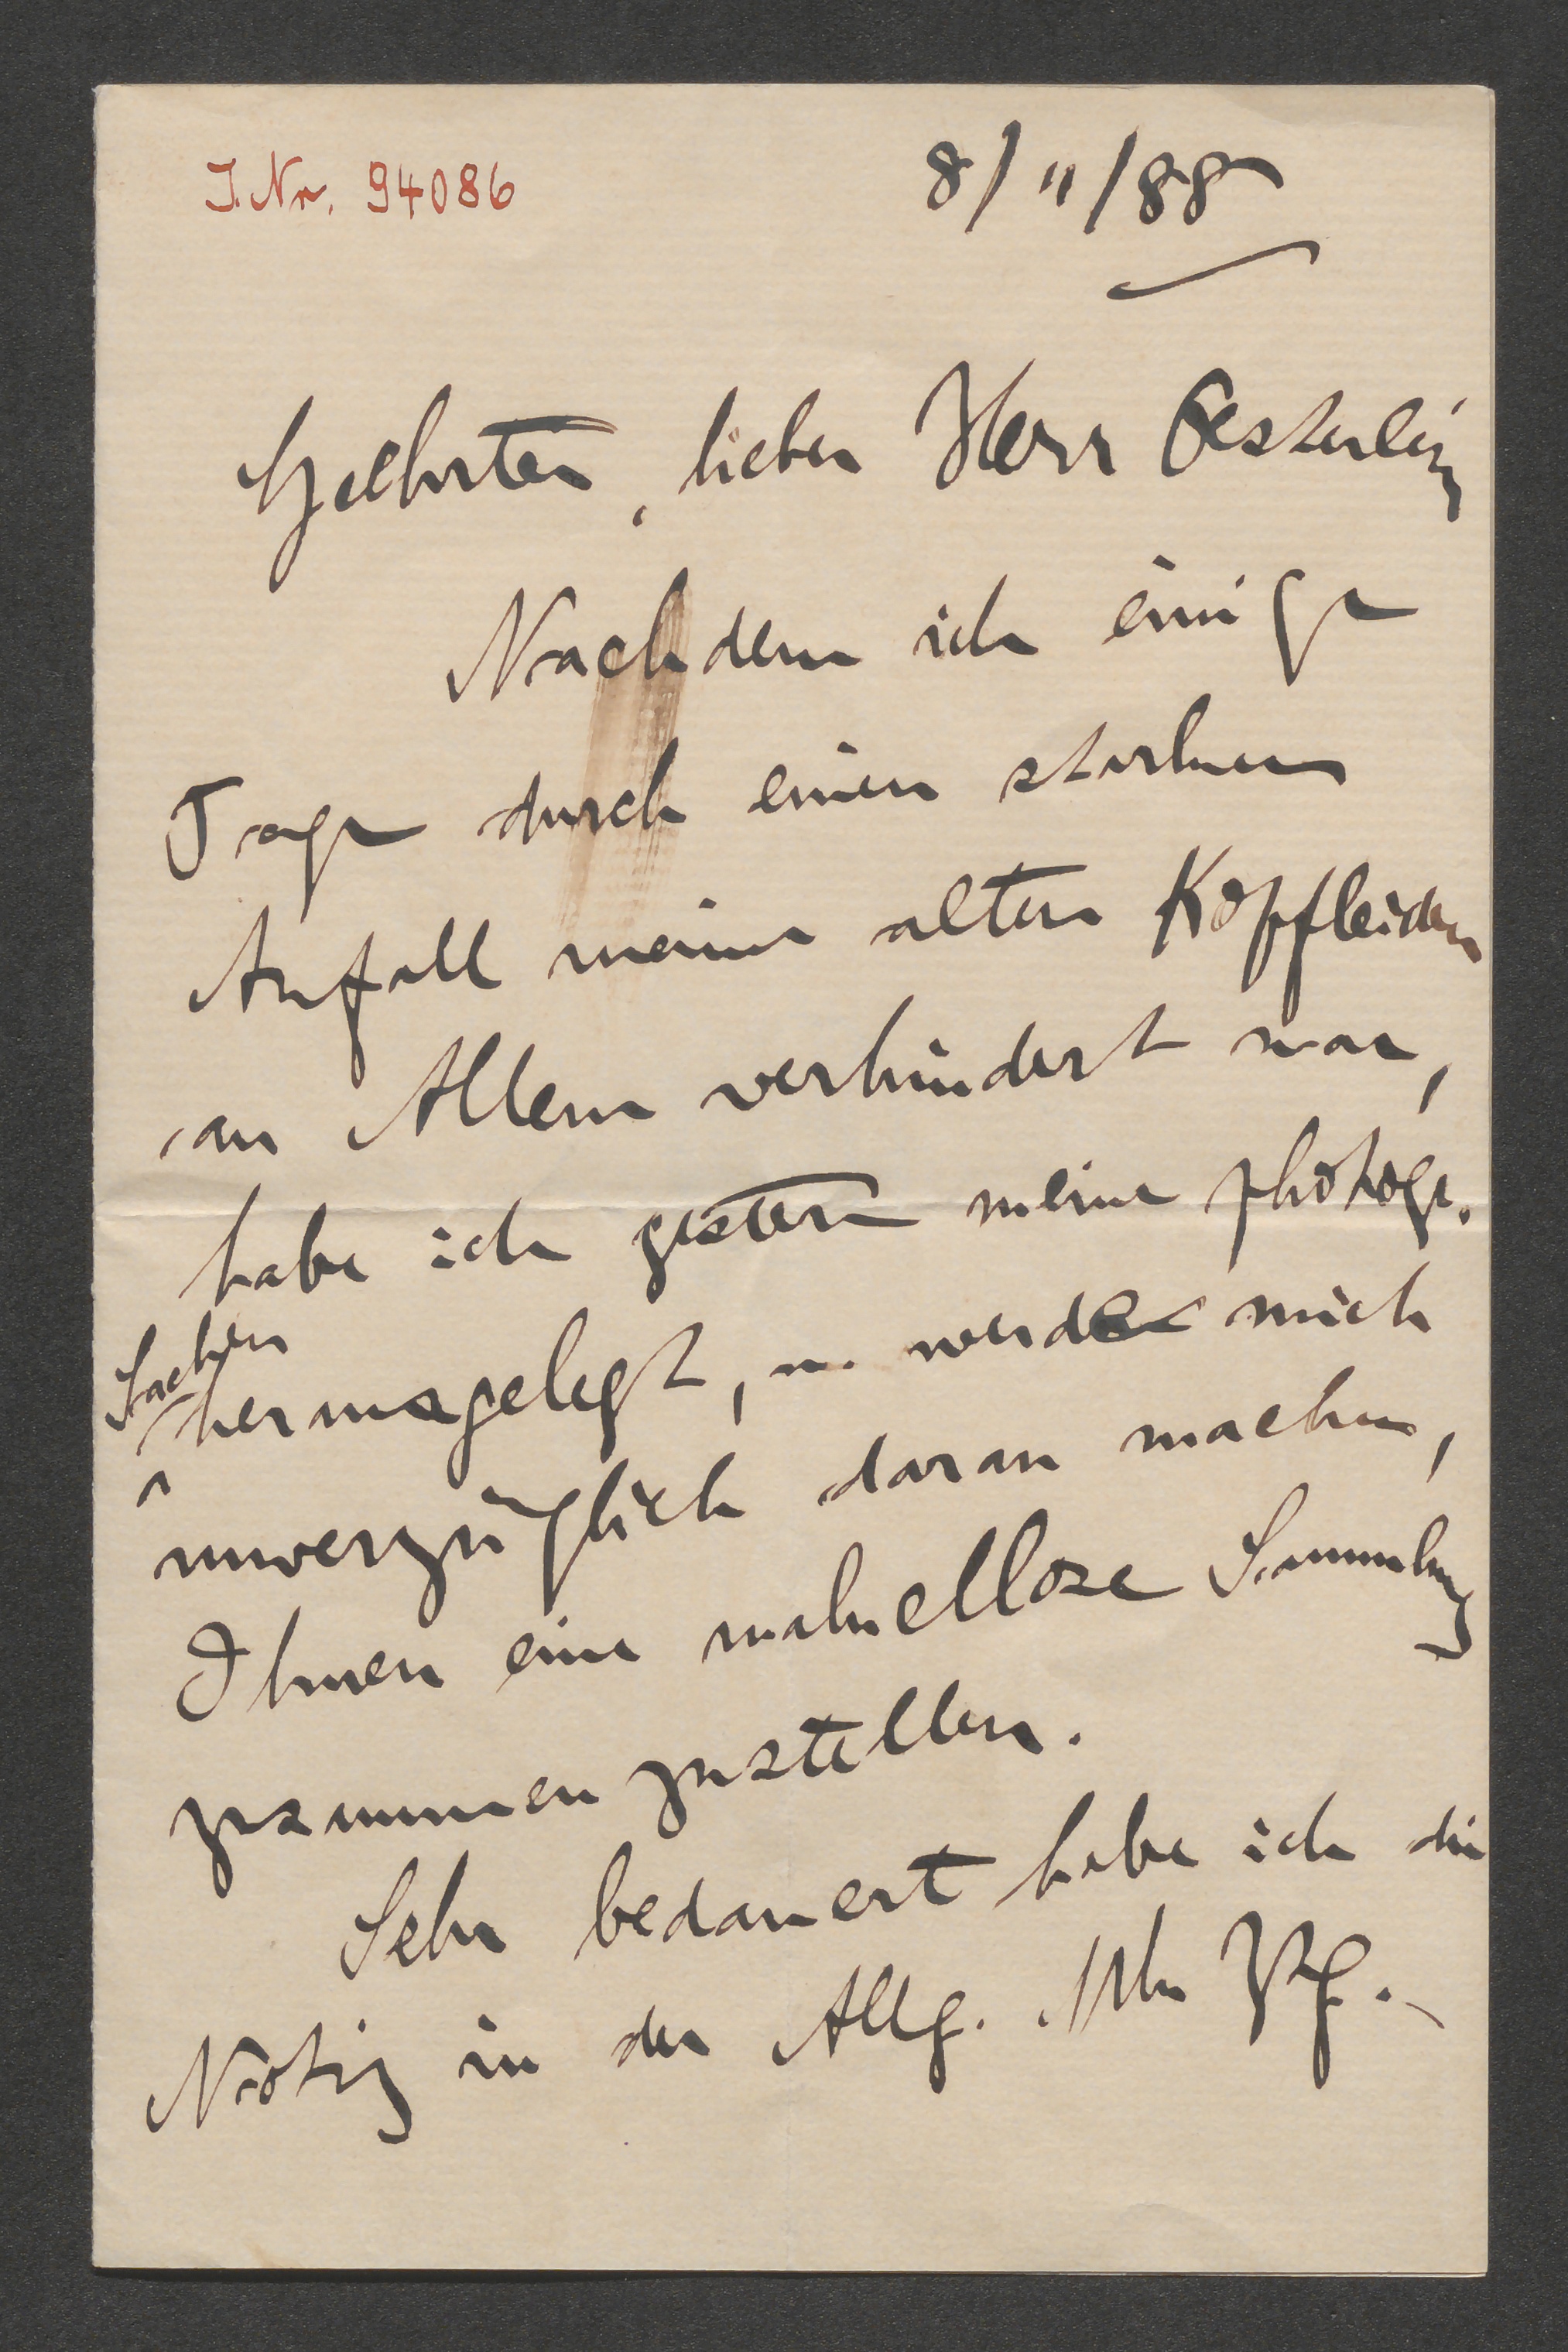 J. Nr. 94086
8/11/88
Geehrter, lieber Herr Oesterlein
Nachdem ich einige
Tage durch einen starken
Anfall meines alten Kopfleidens
an Allem verhindert war,
habe ich gestern meine photogr.
Sachen
herausgelegt, u. werde mich
unverzüglich daran machen,
Ihnen eine makellose Sammlung
zusammenzustellen.
Sehr bedauert habe ich die
Notiz in der Allg. Mk Ztg. -